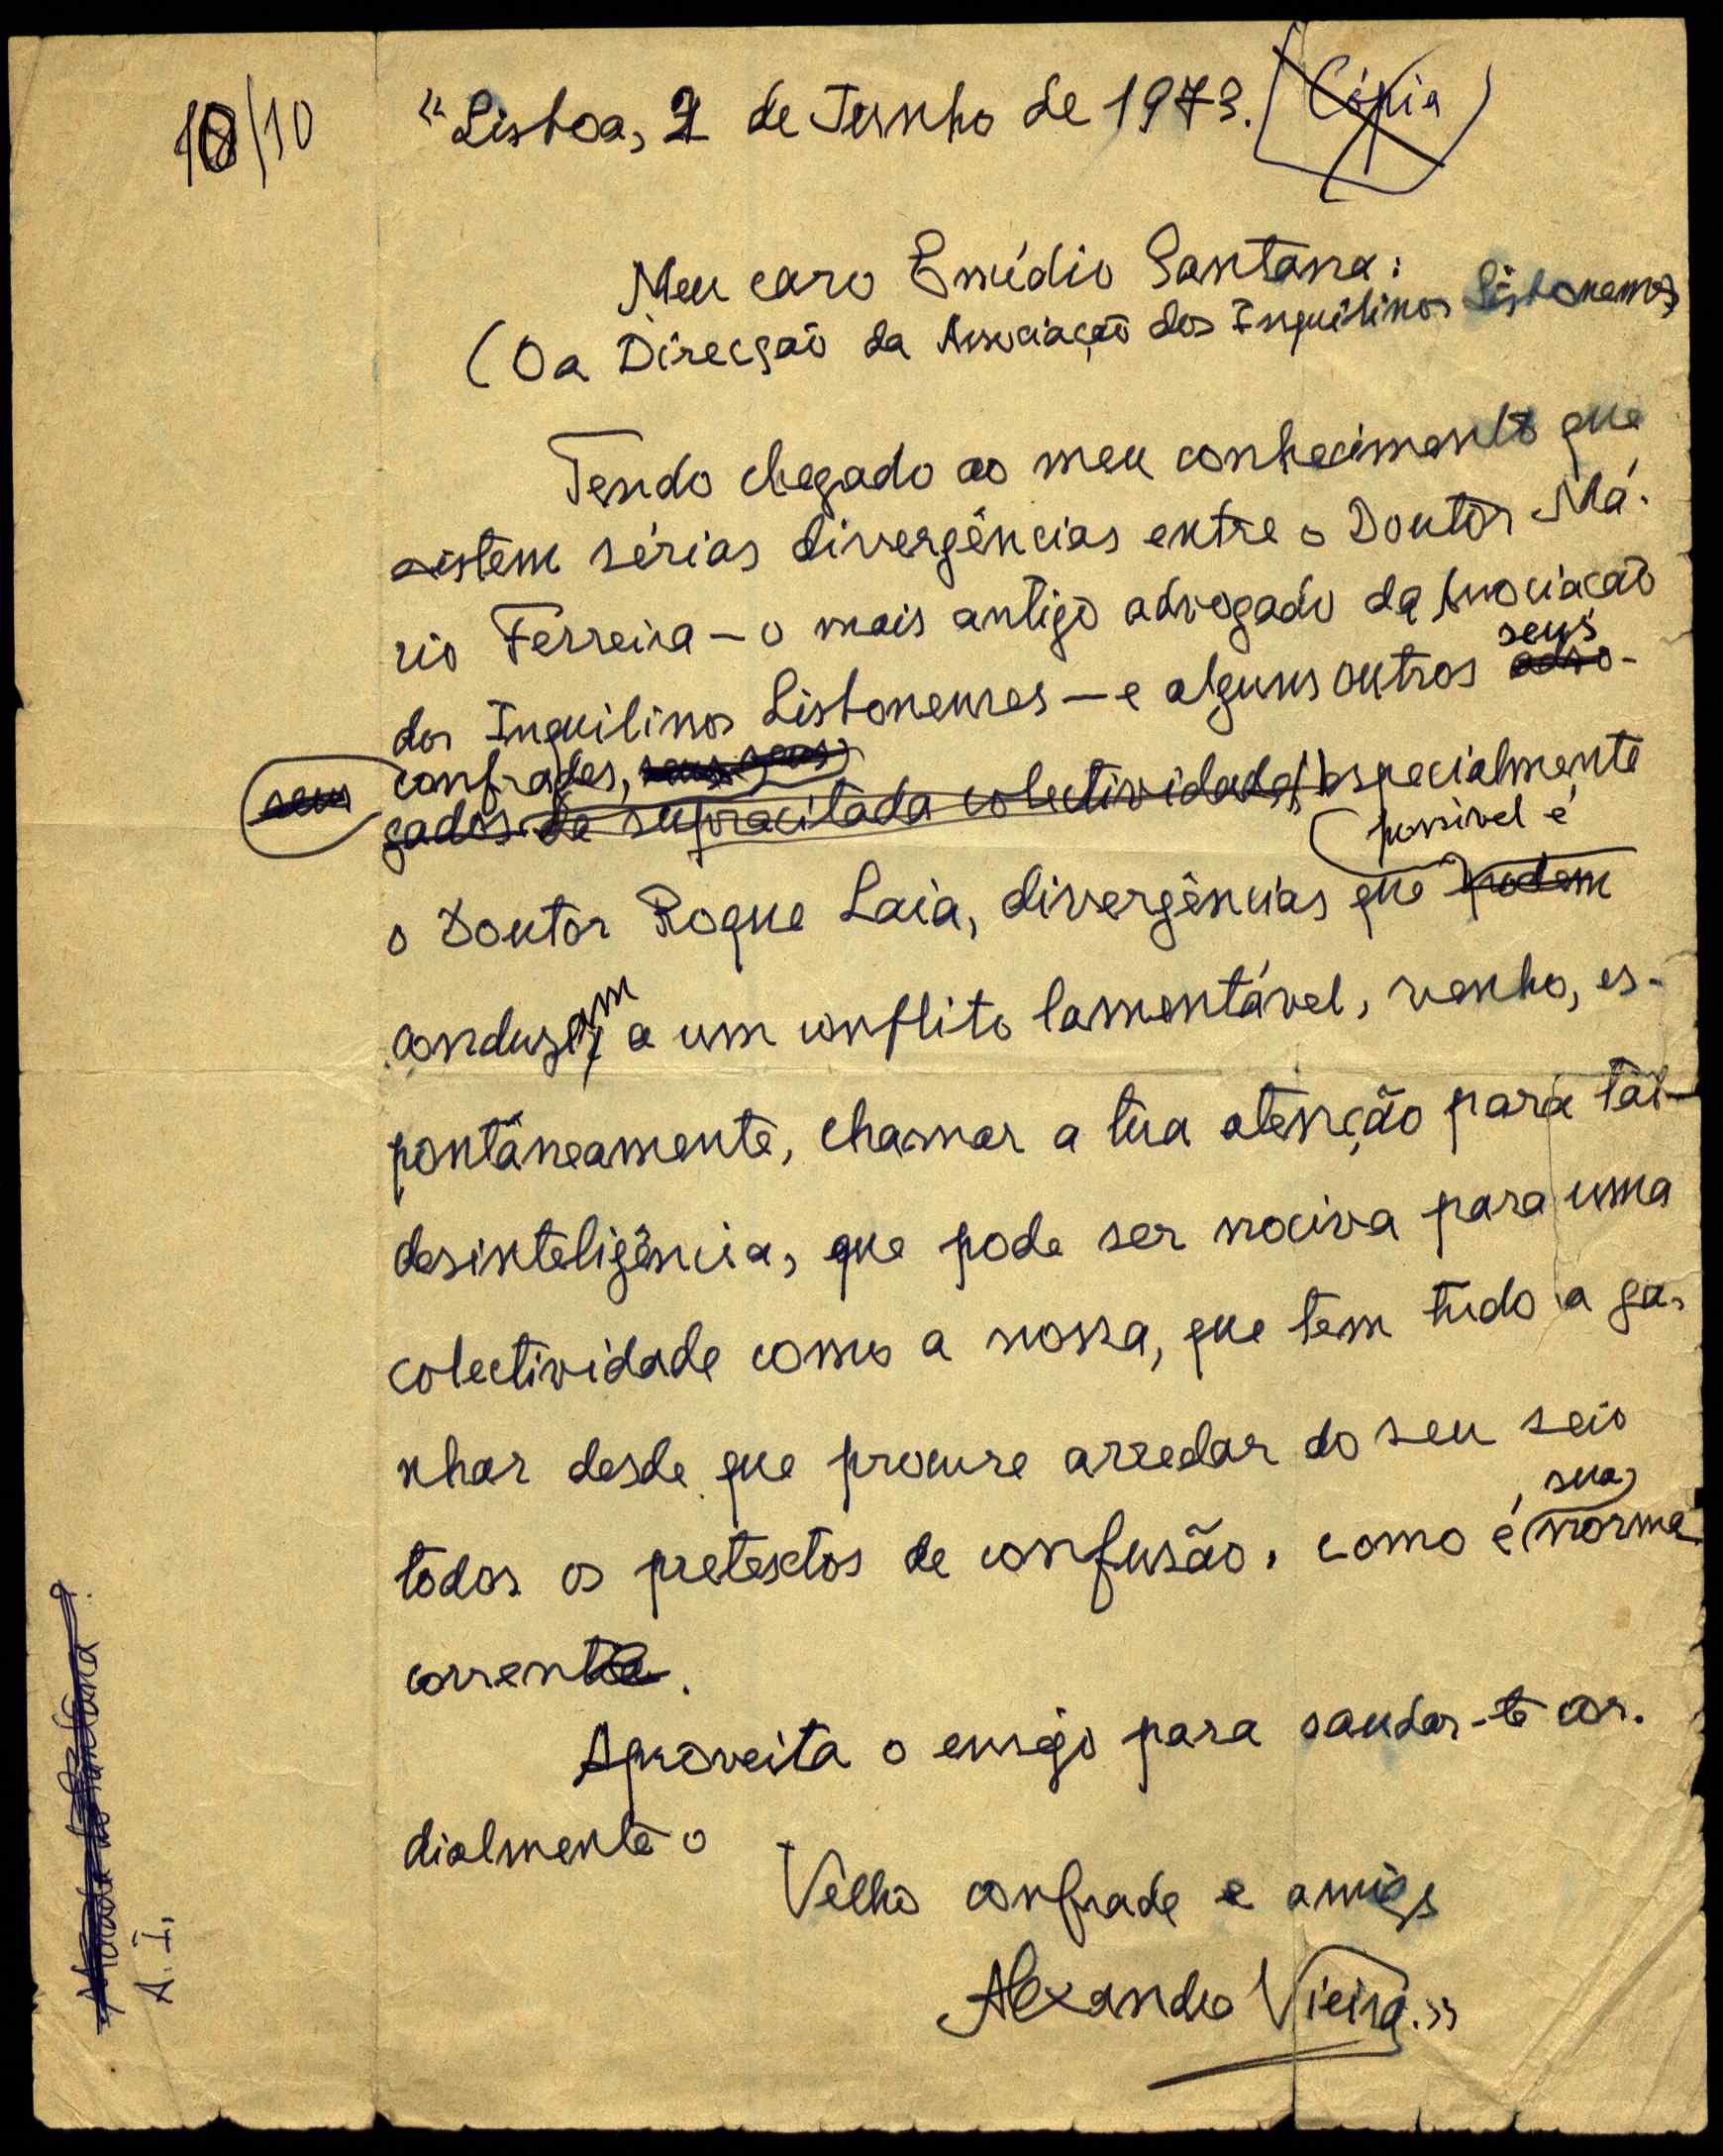 10/10
"Lisboa, 2 de Junho de 1973. (Cópia)
Meu caro Emídio Santana:
(Da Direcção da Associação dos Inquilinos Lisbonenses
Tendo chegado ao meu conhecimento que
existem sérias divergências entre o Doutor Má-
rio Ferreira — o mais antigo advogado da Associação
seus
dos Inquilinos Lisbonenses — e alguns outros advo-
confrades, seus
seus
gados da supracitada colectividade, especialmente
possível é
o Doutor Roque Laia, divergências que podem
conduzam a um conflito lamentável, venho, es-
pontâneamente, chamar a tua atenção para tal
desinteligência, que pode ser nociva para uma
colectividade como a nossa, que tem tudo a ga-
nhar desde que procure arredar do seu seio
sua
todos os pretextos de confusão, como é norma
corrente.
Aproveita o ensejo para saudar-te cor-
dialmente o
Velho confrade e amigo
Alexandre Vieira."
Santana
A. I.